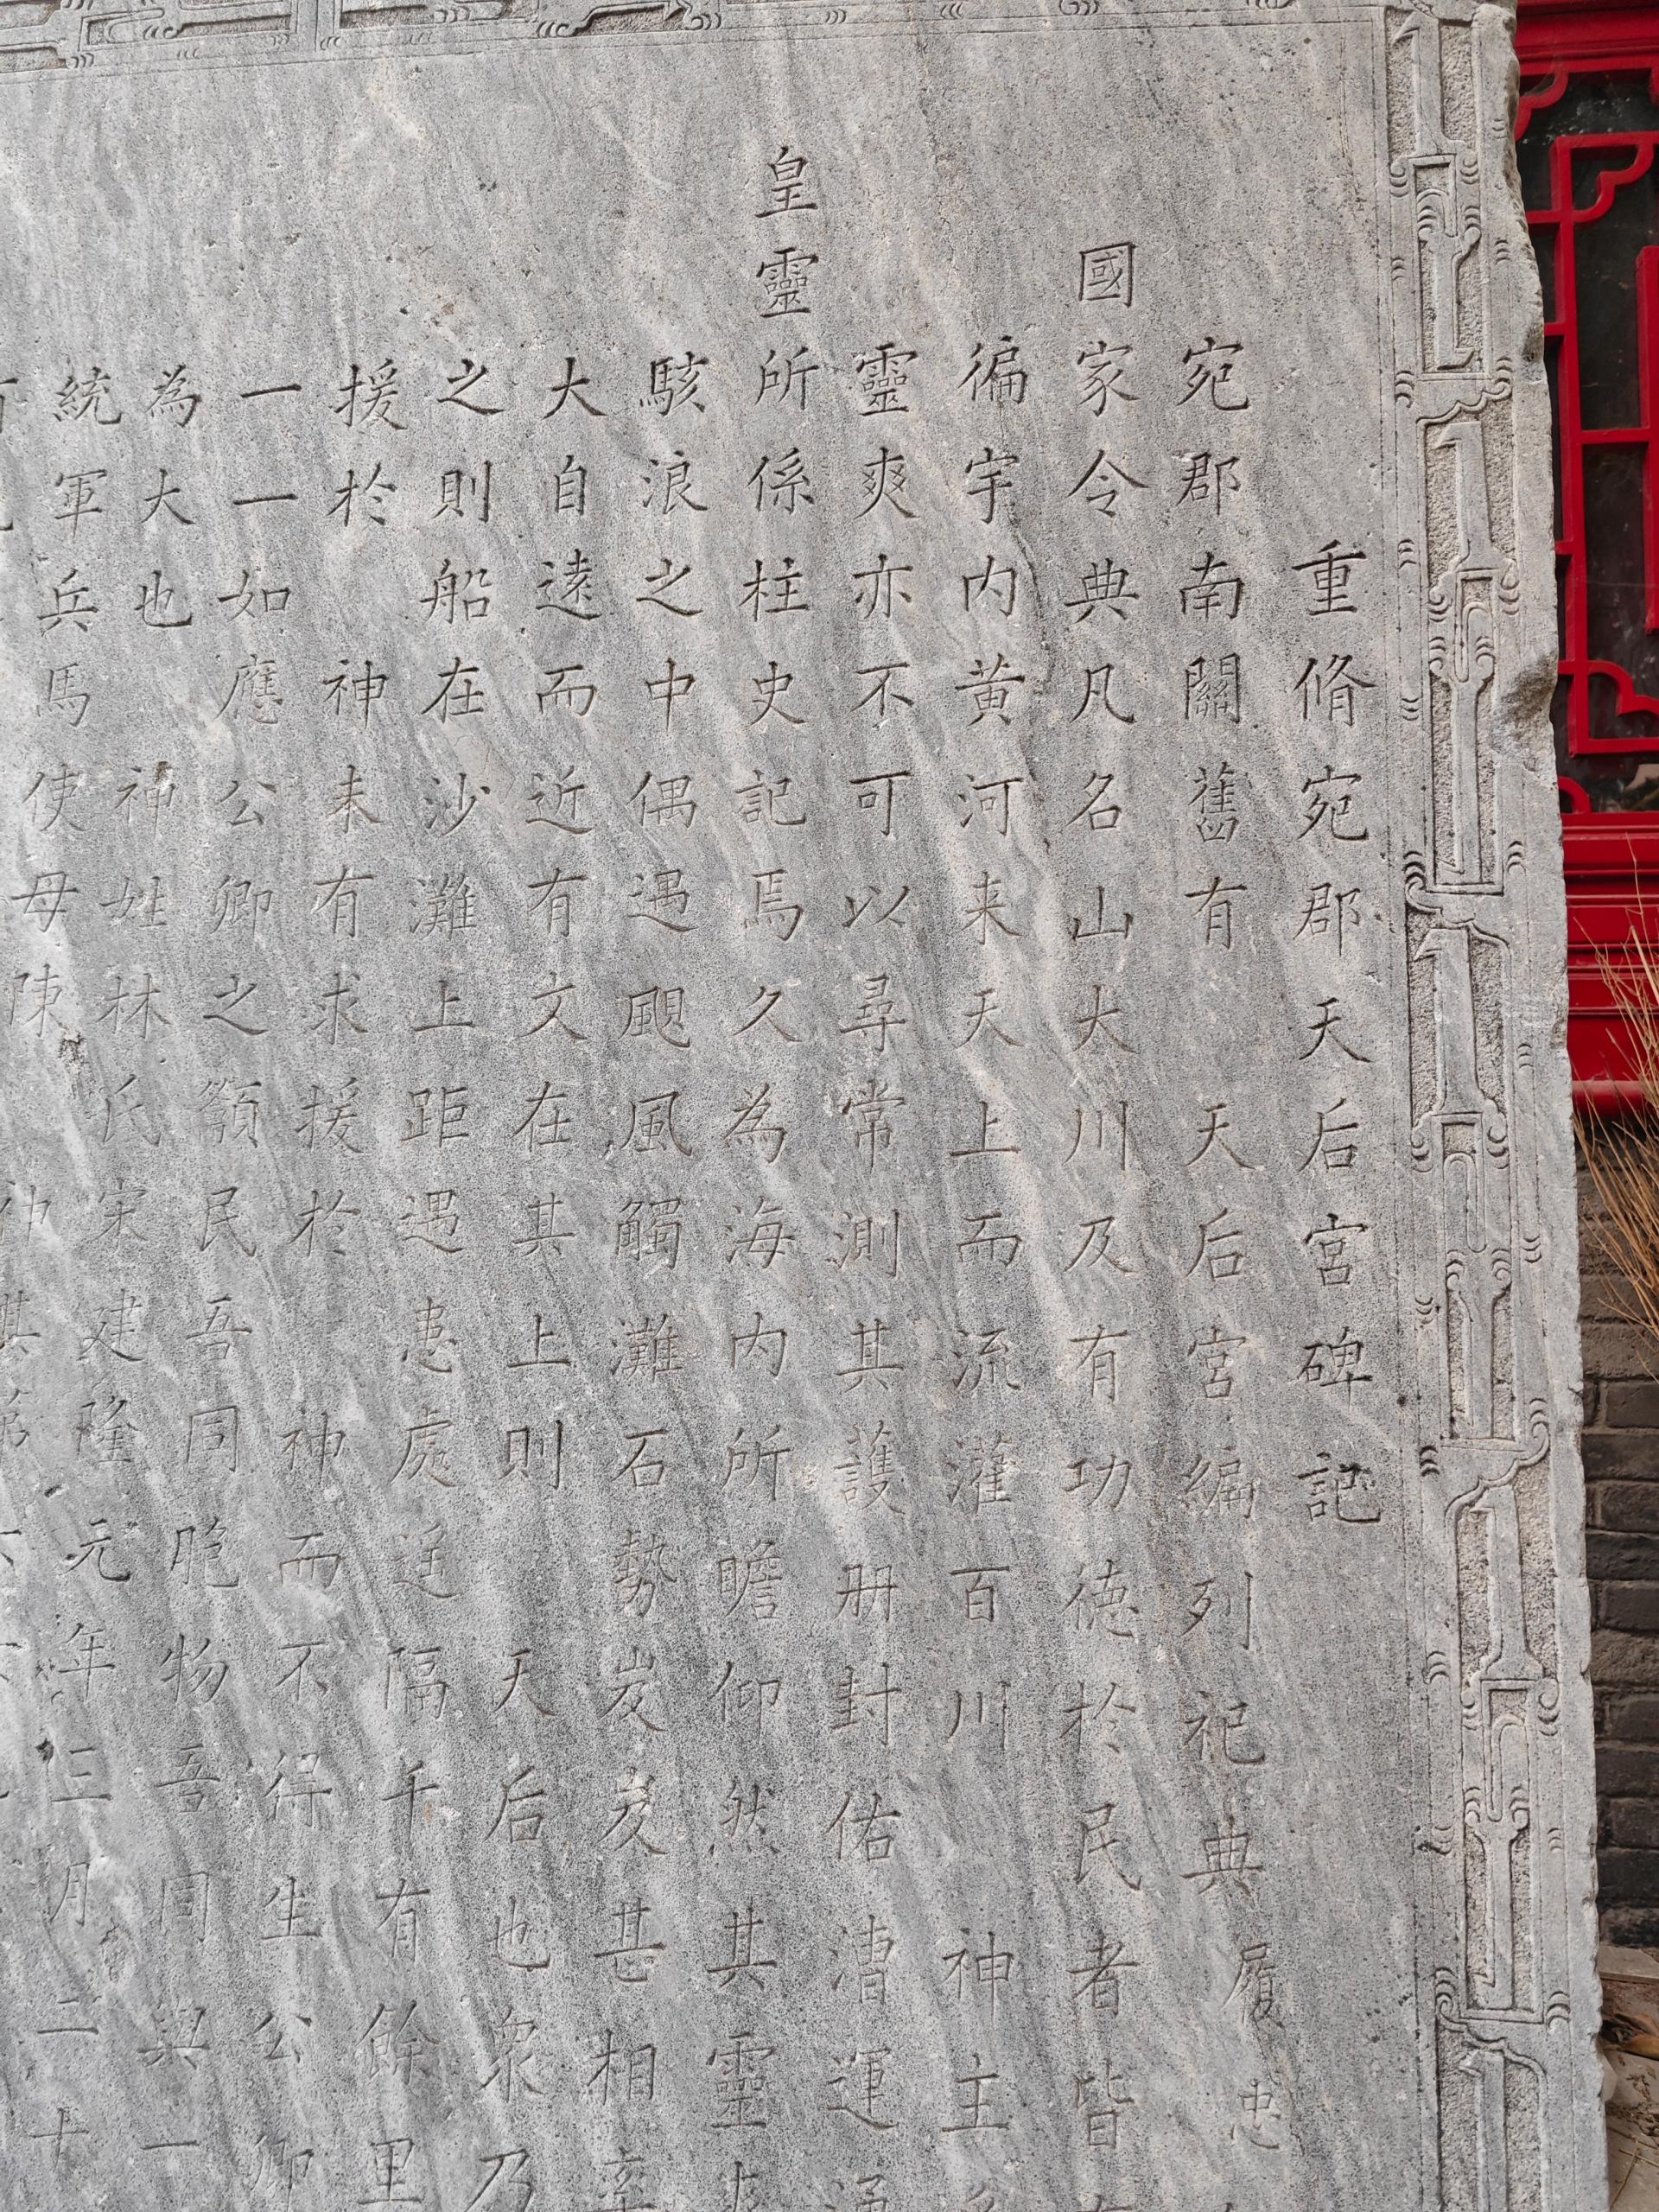 重脩宛郡天后宮碑記
宛郡南關舊有天后宮編列祀典履忠
國家令典凡名山大川及有功德於民者皆
徧宇内黄河来天上而流灌百川神主
靈爽亦不可以尋常測其護册封佑漕運
皇靈所係柱史記焉久為海内所瞻仰然其靈
駭浪之中偶遇颶風觸灘石勢岌岌甚相
大自遠而近有文在其上則天后也衆乃
之則船在沙灘上距遇患處逕隔千有餘里
援於神未有求援於神而不得生公卿
一一如應公卿之籲民吾同胞物吾同與一
為大也神姓林氏宋建隆元年三月二十
統軍兵馬使母陳